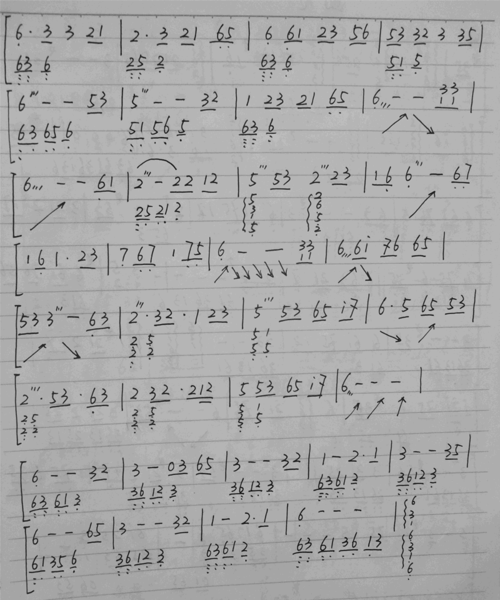 6·3 3 21 | 2·3 21 65 | 6 61 23 56 | 53 32 3 35 |
63 6 25 2 63 6 51 5
6''' - - 53 | 5''' - - 32 | 1 23 21 65 | 6,,, - - 33
11 |
63 65 6 51 56 5 63 6
6,,, - - 61 | 2''' - 22 12 | 5''' 53 2''' 23 | 16 6''' - 67
25 21 2
1 6 1·23 | 7 67 1 75 | 6 - - 33
11 | 6,,, 6i 76 65 |
53 3''' - 63 | 2''' ·32·1 23 | 5''' 53 65 i7 | 6·5 65 53 |
2 5 5 1
2 2 5 5
2'''·53·63 | 2 32·212 | 5 53 65 i7 | 6,,, - - - |
25 2 5 5 1
22 2 2 5 5
6 - - 32 | 3 - 03 65 | 3 - - 32 | 1 - 2·1 | 3 - - 35 |
63 61 2 36 12 3 36 12 3 63 61 2 36 12 3
6 - - 65 | 3 - - 32 | 1 - 2·1 | 6 - - - |
61 35 6 36 12 3 63 61 2 63 61 36 13